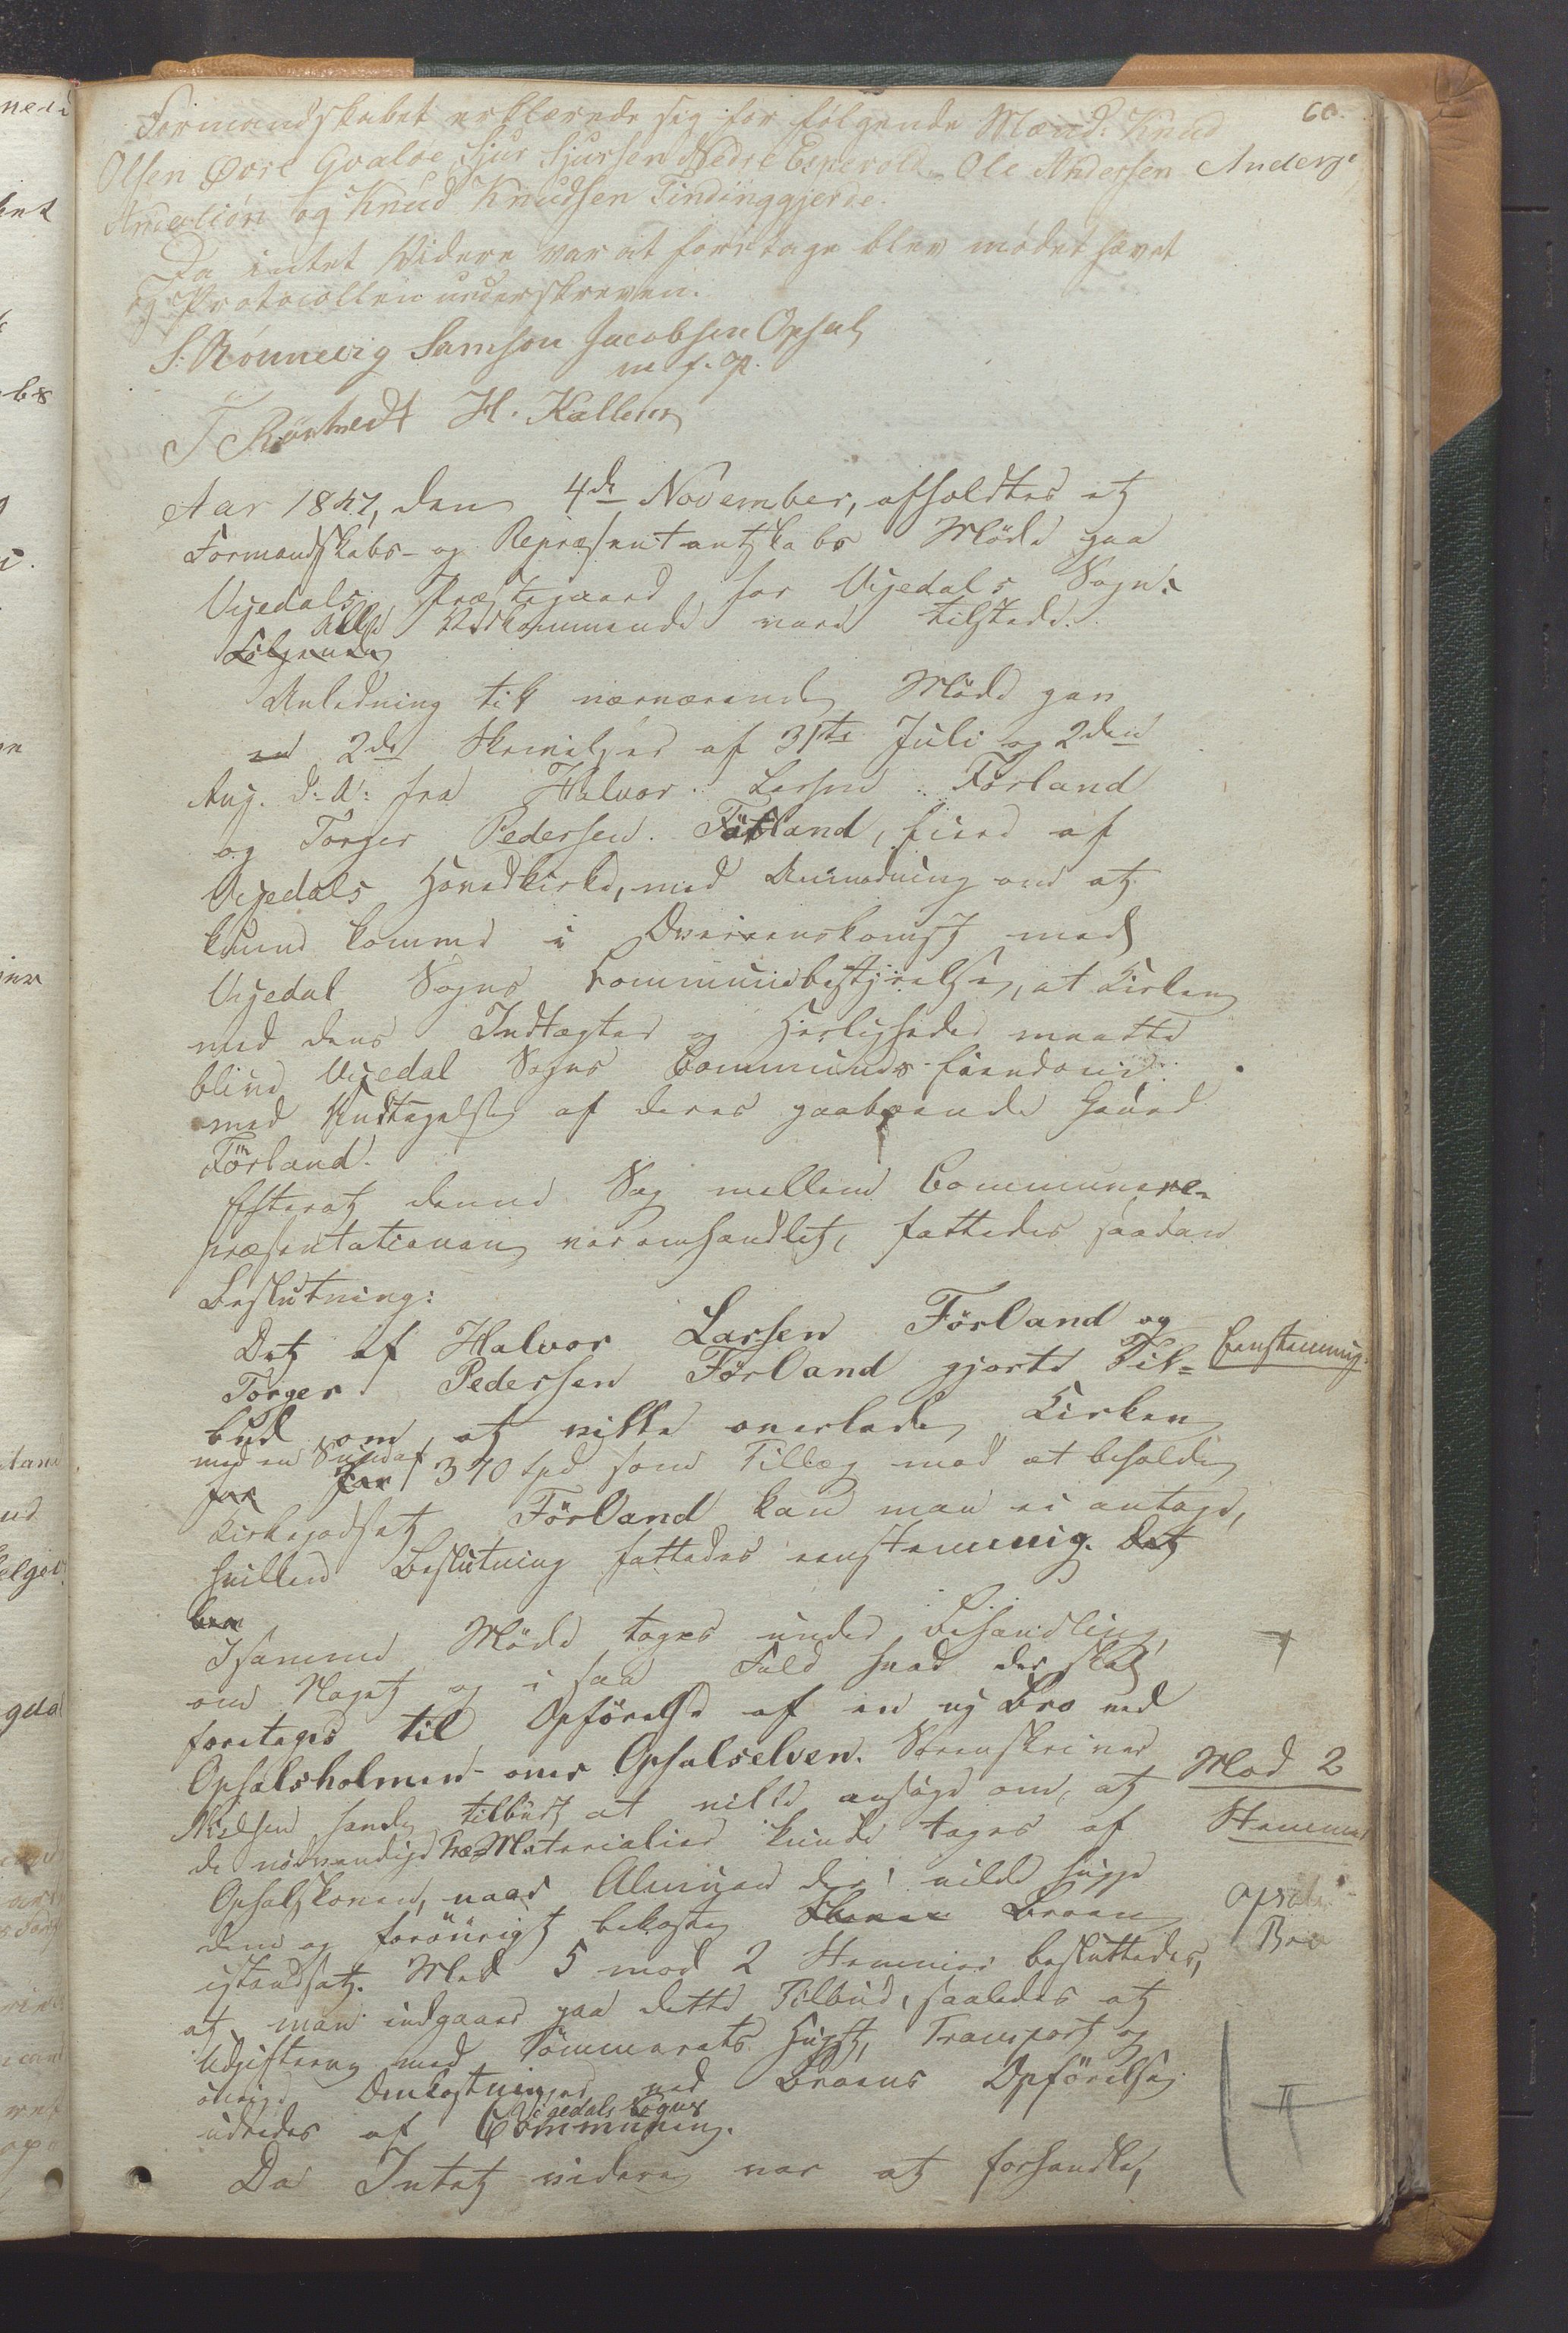 60.
Formandskabet erklærede sig for følgende Mænd: Knud
Olsen Øvre Qvaloe, Sjur Sjursen Nedre Espevold, Ole Andersen
Amdaliön og Knud Knudsen Findinggjerde.
Da intet Videre var at foretage blev mødet hævet
og Protocollen underskreven.
S. Rönnevig Samson Jacobsen Opsal
m. f. P.
H. Kallem
Aar 1847, den 4de November, afholdtes et
Formandskabs- og Repræsentantskabs Möde paa
Vigedals Præstegaard for Vigedals Sogn:
Alle Vedkommende vare tilstede.
Følgende
Anledning til nærværende Möde gav
2de Skrivelser af 31te Juli og 2den
Aug. d: A: fra Halvor Larsen Förland
og Torger Pedersen Förland, Eiere af
Vigedals Hovedkirke, med Anmodning om at
kunne komme i Overeenskomst med
Vigedal Sogns Communebestyrelse, at Kirken
med dens Indtægter og Herligheder maatte
blive Vigedal Sogns Communes Eiendom
med Undtagelse af deres paaboende Gaard
Förland.
Efterat denne Sag mellem Communere-
præsentationen var omhandlet, fattedes saadan
Beslutning:
Det af Halvor Larsen Förland og
Torger Pedersen Förland gjorte Til-
Eenstemmig.
bud om at ville overlade Kirken
med en Sum af
for for 370 Spd som Tillæg mod at beholde
Kirkegodset Förland kan man ei antage,
hvilken Beslutning fattedes eenstemmig. Det
I samme Möde toges under Behandling,
om Noget og i saa Fald hvad der skal
foretages til Opförelse af en ny Bro ved
Opsalsholmen over Opsalselven. Sorenskriver
Mod 2
Stemmer
Nielsen havde tilbudt at ville ansøge om, at
de nödvendige Træ Materialier kunde tages af
Opsalskoven, naar Almuen der vilde hugge
dem og forövrigt bekoste Broen
opsals
Bro
istandsat. Med 5 mod 2 Stemmer besluttedes,
at man indgaaer paa dette Tilbud, saaledes at
Udgifterne med Tömmerets Hugst, Transport og
övrige Omkostninger ved Broens Opförelse
Vigedals Sogns
udredes af Communen.
Da Intet videre var at forhandle,